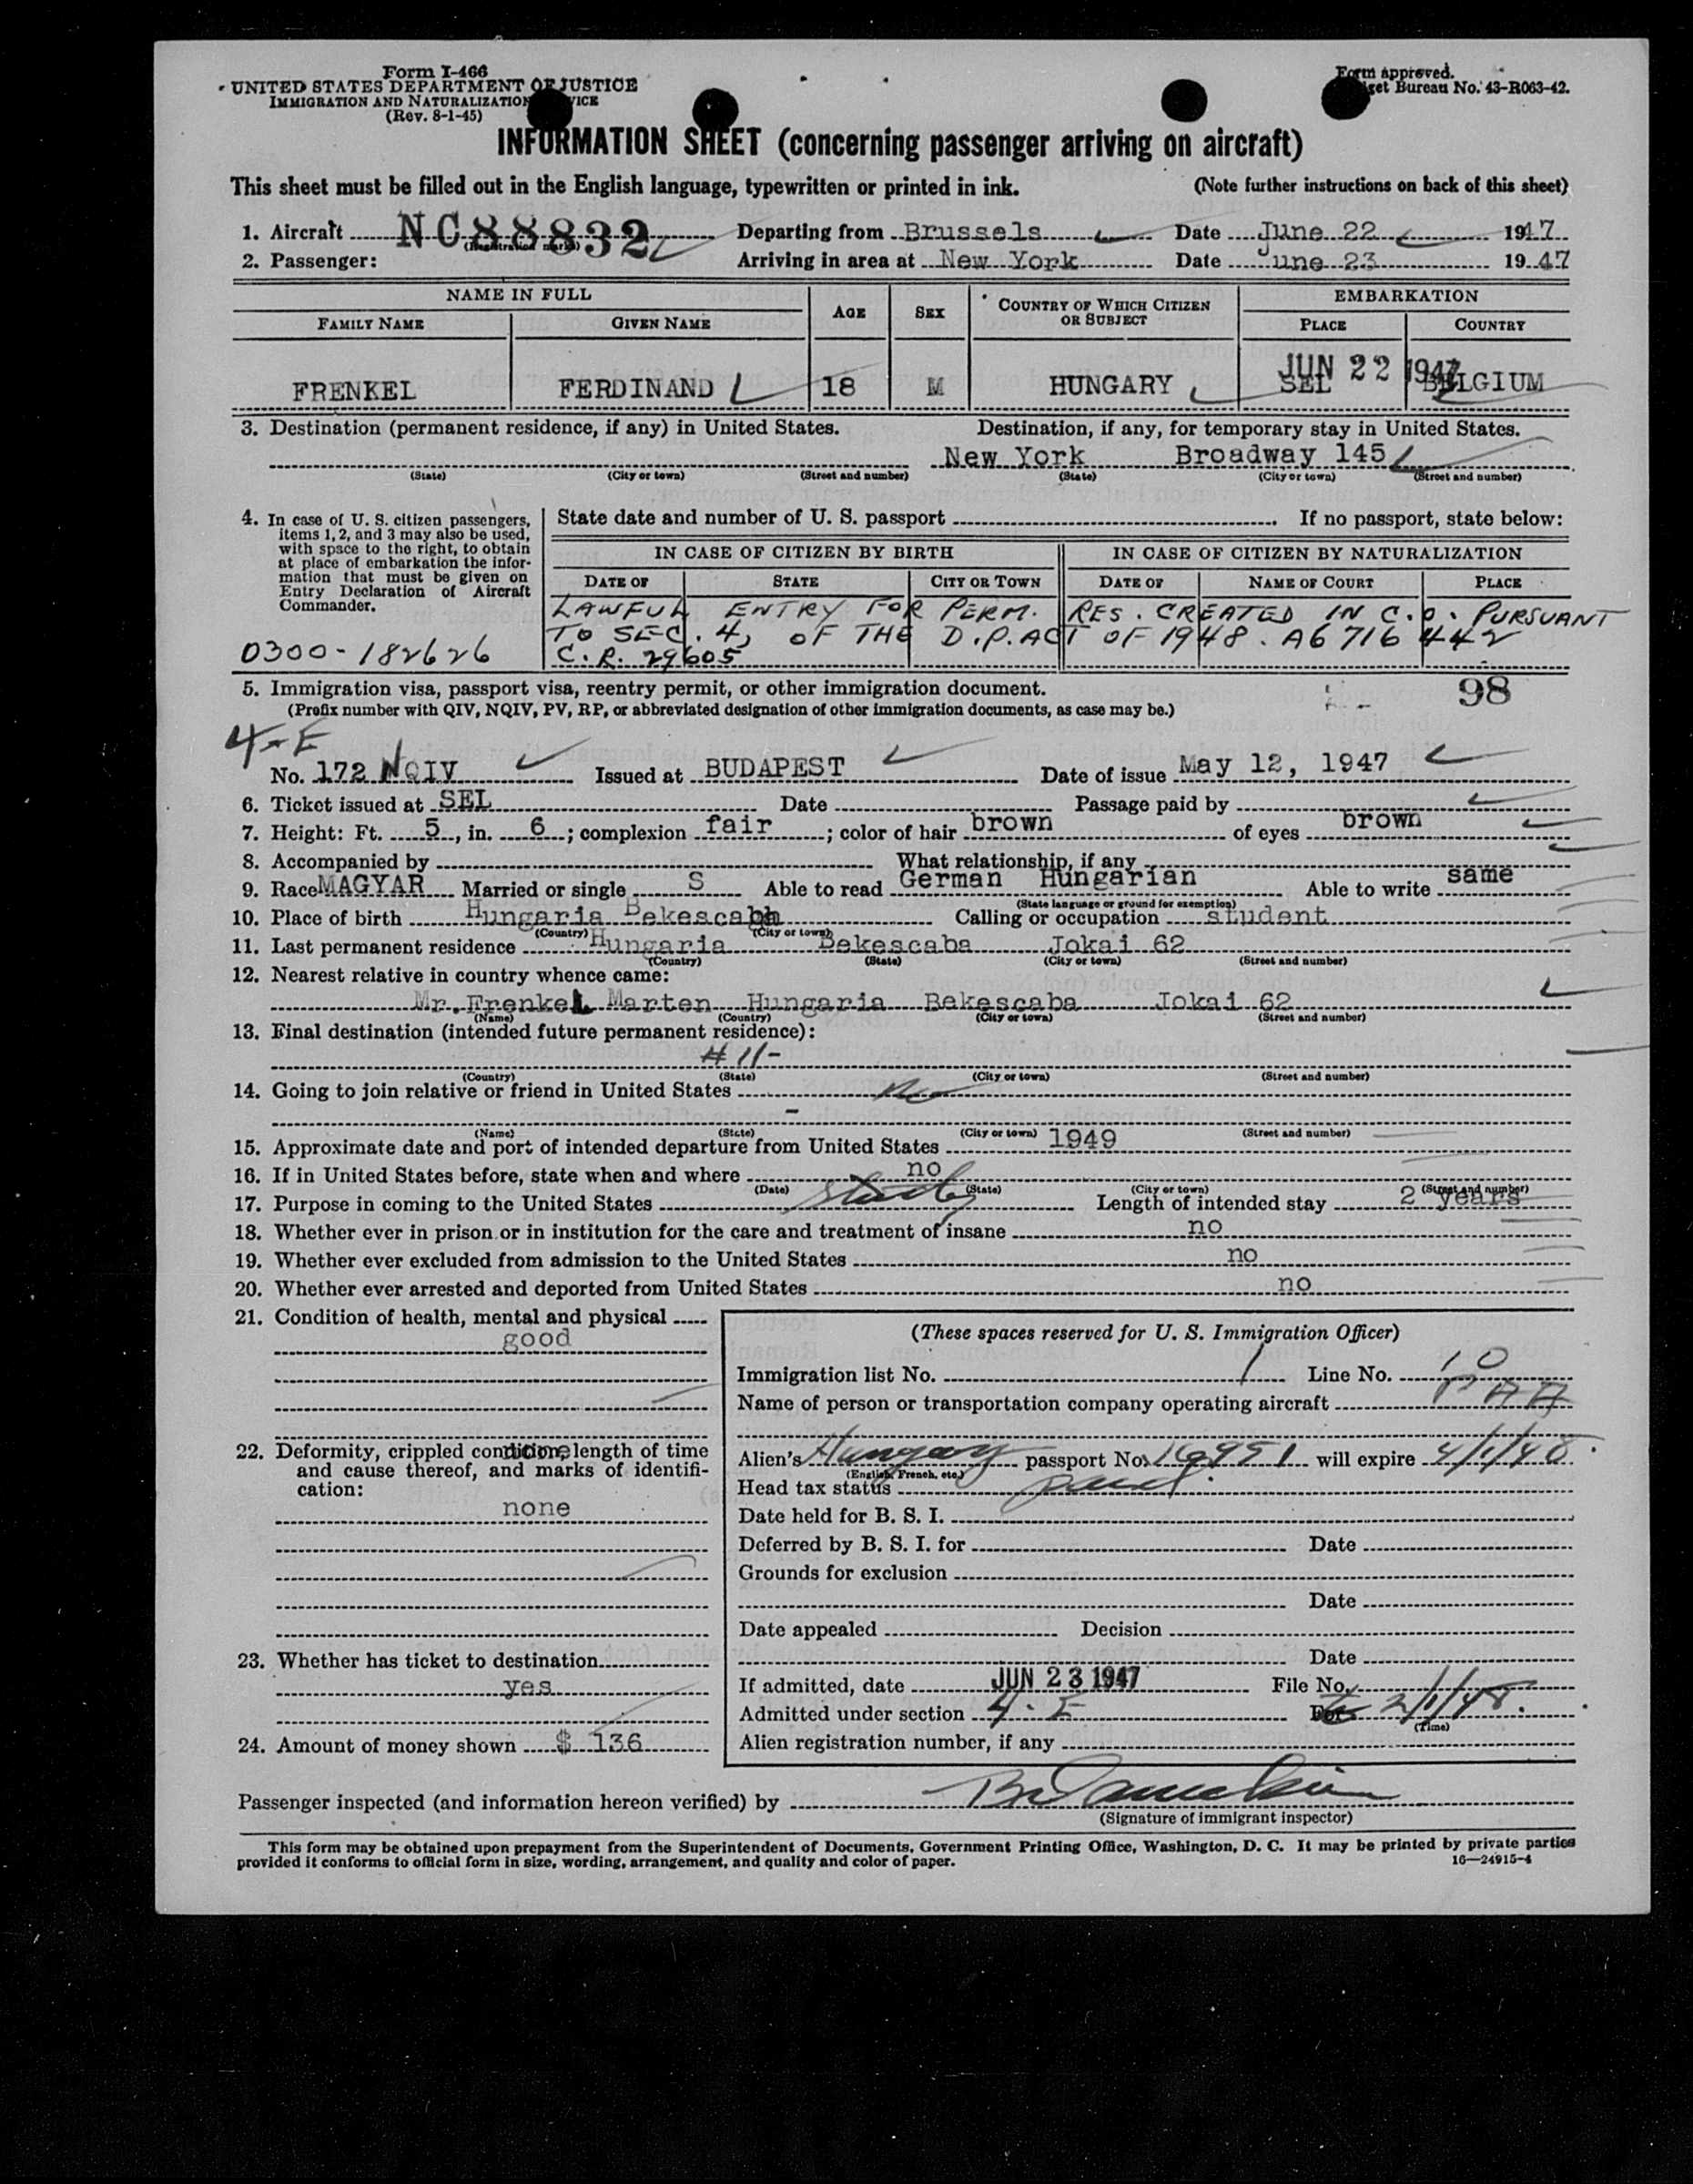 Form I-466
UNITED STATES DEPARTMENT OF JUSTICE
IMMIGRATION AND NATURALIZATION SERVICE
(Rev. 8-1-45)
Form approved.
Budget Bureau No. 43-R063-42.
INFORMATION SHEET (concerning passenger arriving on aircraft)
This sheet must be filled out in the English language, typewritten or printed in ink. (Note further instructions on back of this sheet)
1. Aircraft NC88832 Departing from Brussels Date June 22 1947
(Registration marks)
2. Passenger: Arriving in area at New York Date June 23 1947
NAME IN FULL AGE SEX COUNTRY OF WHICH CITIZEN OR SUBJECT EMBARKATION
FAMILY NAME GIVEN NAME PLACE COUNTRY
JUN 22 1947
FRENKEL FERDINAND 18 M HUNGARY SEL BELGIUM
3. Destination (permanent residence, if any) in United States. Destination, if any, for temporary stay in United States.
New York Broadway 145
(State) (City or town) (Street and number) (State) (City or town) (Street and number)
4. In case of U. S. citizen passengers, items 1, 2, and 3 may also be used, with space to the right, to obtain at place of embarkation the information that must be given on Entry Declaration of Aircraft Commander.
State date and number of U. S. passport If no passport, state below:
IN CASE OF CITIZEN BY BIRTH IN CASE OF CITIZEN BY NATURALIZATION
DATE OF STATE CITY OR TOWN DATE OF NAME OF COURT PLACE
LAWFUL ENTRY FOR PERM. RES. CREATED IN C.O. PURSUANT
TO SEC. 4, OF THE D.P. ACT OF 1948. A6 716 442
C.R. 29605
0300-182626
5. Immigration visa, passport visa, reentry permit, or other immigration document. 98
(Prefix number with QIV, NQIV, PV, RP, or abbreviated designation of other immigration documents, as case may be.)
4-E
No. 172 NQIV Issued at BUDAPEST Date of issue May 12, 1947
6. Ticket issued at SEL Date Passage paid by
7. Height: Ft. 5, in. 6; complexion fair; color of hair brown of eyes brown
8. Accompanied by What relationship, if any
9. Race MAGYAR Married or single S Able to read German Hungarian Able to write same
(State language or ground for exemption)
10. Place of birth Hungaria Bekescaba Calling or occupation student
(Country) (City or town)
11. Last permanent residence Hungaria Bekescaba Jokai 62
(Country) (State) (City or town) (Street and number)
12. Nearest relative in country whence came:
Mr. Frenkel Marten Hungaria Bekescaba Jokai 62
(Name) (Country) (City or town) (Street and number)
13. Final destination (intended future permanent residence):
# 11-
(Country) (State) (City or town) (Street and number)
14. Going to join relative or friend in United States no
-
(Name) (State) (City or town) (Street and number)
15. Approximate date and port of intended departure from United States 1949
16. If in United States before, state when and where no
(Date) (State) (City or town) (Street and number)
17. Purpose in coming to the United States study Length of intended stay 2 years
18. Whether ever in prison or in institution for the care and treatment of insane no
19. Whether ever excluded from admission to the United States no
20. Whether ever arrested and deported from United States no
21. Condition of health, mental and physical
good
22. Deformity, crippled condition, length of time and cause thereof, and marks of identification:
none
none
23. Whether has ticket to destination
yes
24. Amount of money shown $ 136
(These spaces reserved for U. S. Immigration Officer)
Immigration list No. 1 Line No. 10
Name of person or transportation company operating aircraft PAA
Alien's Hungary passport No. 16951 will expire 4/1/48.
(English, French, etc.)
Head tax status paid
Date held for B. S. I.
Deferred by B. S. I. for Date
Grounds for exclusion
Date
Date appealed Decision
Date
If admitted, date JUN 23 1947 File No.
Admitted under section 4-E For to 2/1/48.
(Time)
Alien registration number, if any
Passenger inspected (and information hereon verified) by
(Signature of immigrant inspector)
This form may be obtained upon prepayment from the Superintendent of Documents, Government Printing Office, Washington, D. C. It may be printed by private parties
provided it conforms to official form in size, wording, arrangement, and quality and color of paper. 16—24915-4